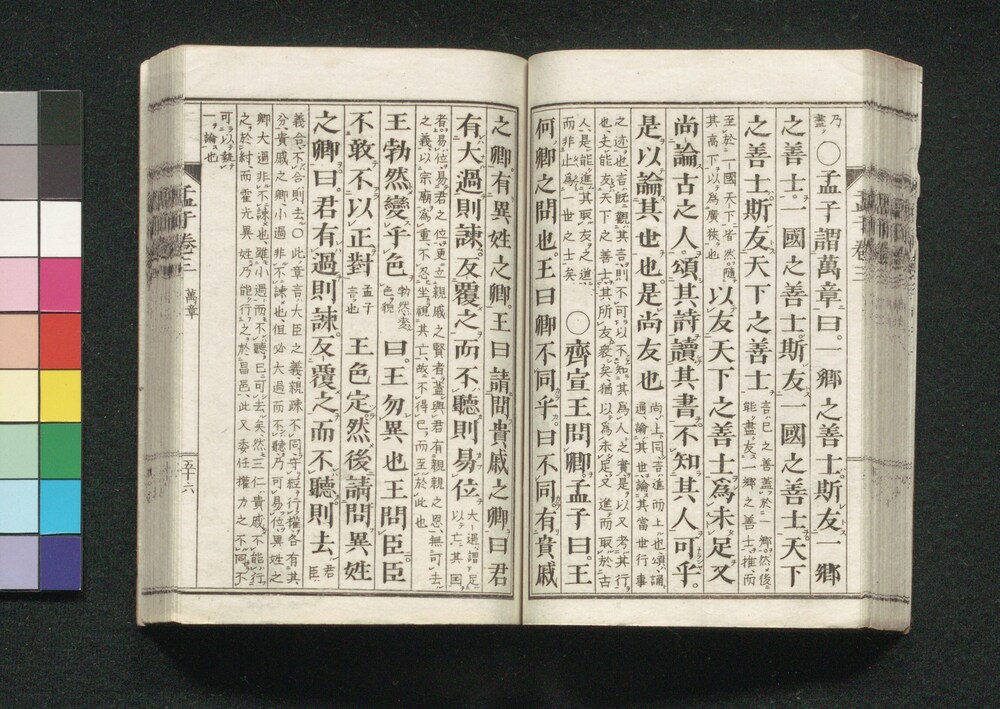 乃
盡
〇孟子謂萬章曰一鄉之善士斯友一鄉
之善士一國之善士斯友一國之善士天下
之善士斯友天下之善士言己之善蓋於一鄉然後
能盡友一鄉之善士推而
至於一國天下皆然隨
其高下以爲廣狹也以友天下之善士爲未足又
尚論古之人頌其詩讀其書不知其人可乎
是以論其世也是尚友也尚上同言進而上也頌誦
通論其世論其當世行事
之迹也言旣觀其言則不可以不知其爲人之實是以又考其行
也夫能友天下之善士其所友衆矣猶以爲未足又進而取於古
人是能進其取友之道
而非止爲一世之士矣〇齊宣王問卿孟子曰王
何卿之問也王曰卿不同乎曰不同有貴戚
之卿有異姓之卿王曰請問貴戚之卿曰君
有大過則諫反覆之而不聽則易位大過謂足
以亡其國
者易位易君之位更立親戚之賢者蓋與君有親親之恩無可去
之義以宗廟爲重不忍坐視其亡故不得已而至於此也
王勃然變乎色勃然變
色貌曰王勿異也王問臣臣
不敢不以正對孟子
言也王色定然後請問異姓
之卿曰君有過則諫反覆之而不聽則去君臣
義合不合則去〇此章言大臣之義親疎不同守經行權各有其
分貴戚之卿小過非不諫也但必大過而不聽乃可易位異姓之
卿大過非不諫也雖小過而不聽已可去矣然三仁貴戚不能行
之於紂而霍光異姓乃能行之於昌邑此又委任權力之不同不
可以執
一論也
孟子卷三
萬章
五十六
孟子卷三